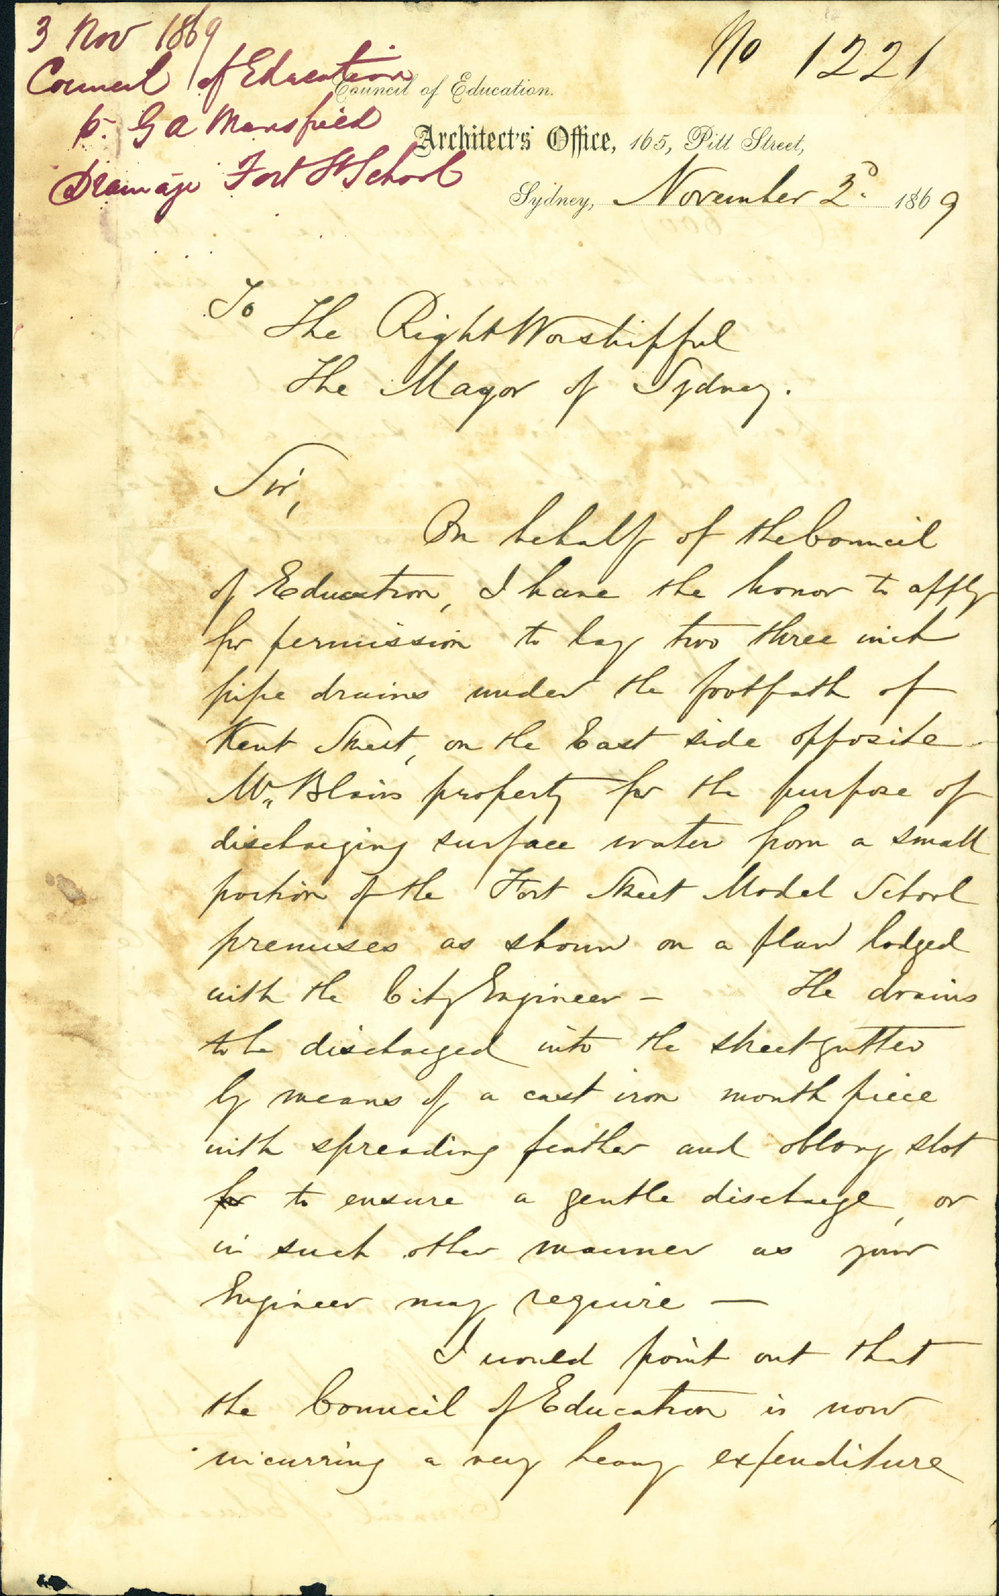 3 Nov 1869
Council of Education
p. G A Mansfield
Drainage Fort St School
No 1221
Council of Education.
Architect's Office, 165, Pitt Street,
Sydney, November 3d. 1869
To
The Right Worshipful
The Mayor of Sydney.
Sir,
On behalf of the Council
of Education, I have the honor to apply
for permission to lay two three inch
pipe drains under the footpath of
Kent Street, on the East side opposite
Mr. Blairs property for the purpose of
discharging surface water from a small
portion of the Fort Street Model School
premises as shown on a plan lodged
with the City Engineer — The drains
to be discharged into the street gutter
by means of a cast iron mouth piece
with spreading feather and oblong slot
for to ensure a gentle discharge, or
in such other manner as your
Engineer may require —
I would point out that
the Council of Education is now
incurring a very heavy expenditure